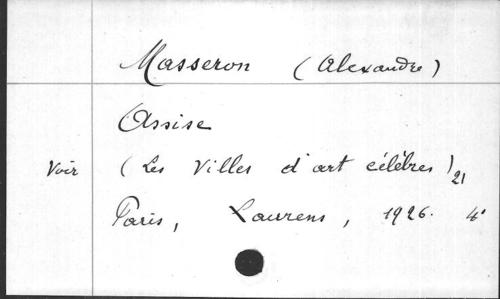 Masseron (Alexandre)
Assise
Voir (Les Villes d'art célèbres) 21
Paris, Laurens, 1926. 4°